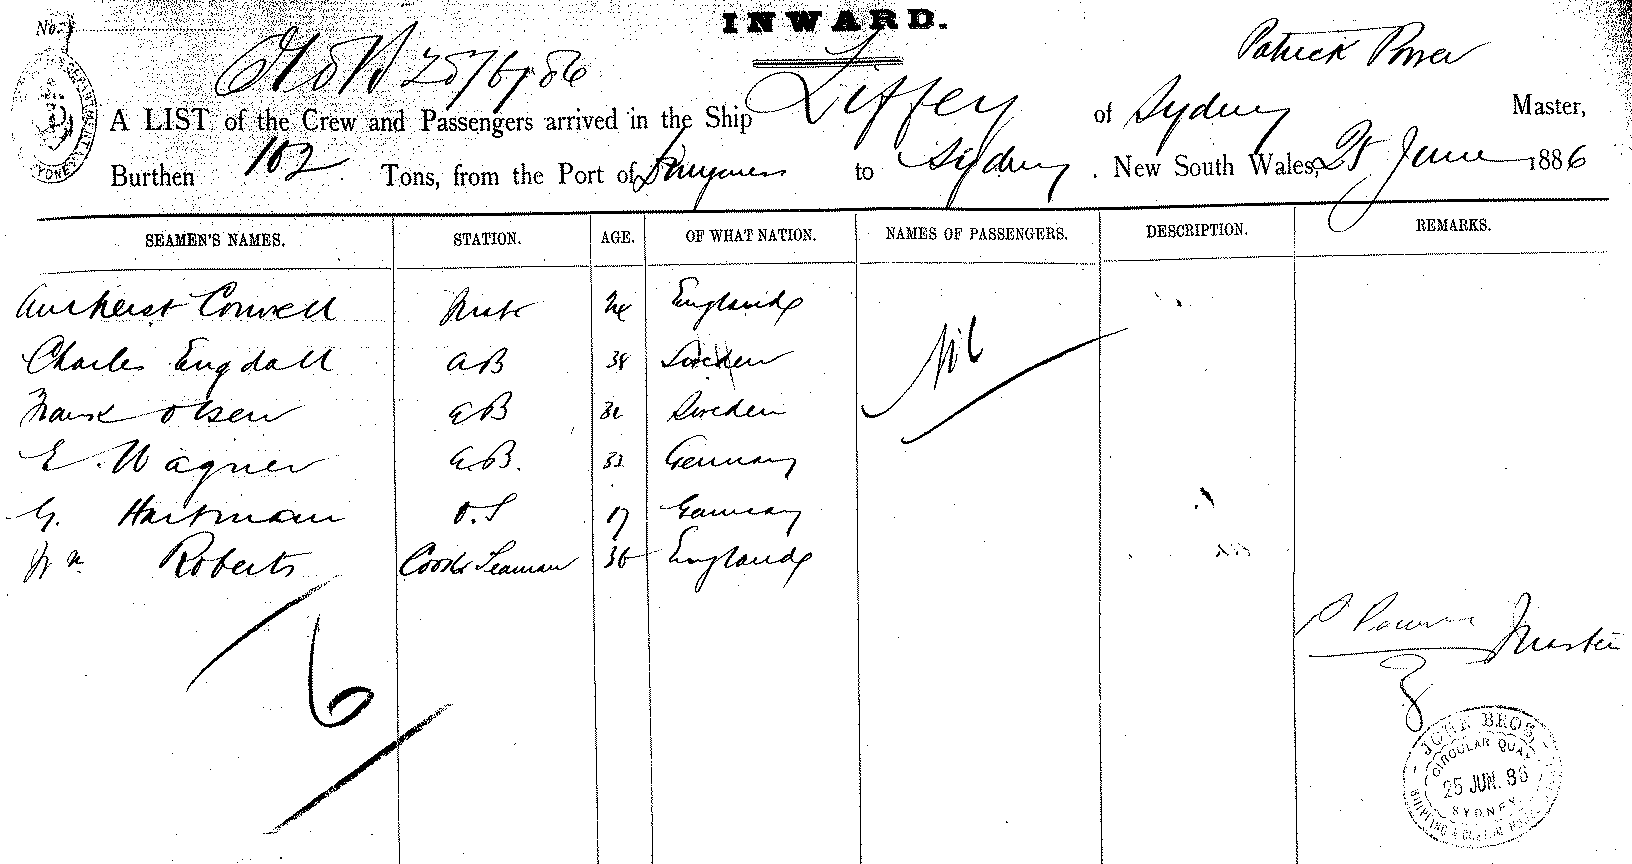 No.
INWARD.
Patrick Power
25/6/86
A LIST of the Crew and Passengers arrived in the Ship Liffey of Sydney Master,
Burthen 102 Tons, from the Port of to Sydney. New South Wales, 25 June 1886
SEAMEN'S NAMES. STATION. AGE. OF WHAT NATION. NAMES OF PASSENGERS. DESCRIPTION. REMARKS.
Amherst Conwell Mate England Nil
Charles Engdall AB 38 Sweden
Olsen AB Sweden
E. Wagner AB. 33 Germany
G. Hartman O.S 17 Germany
Wm Roberts Cook & Seaman 36 England
P Power Master
6
BROS.
CIRCULAR QUAY
25 JUN. 86
SYDNEY